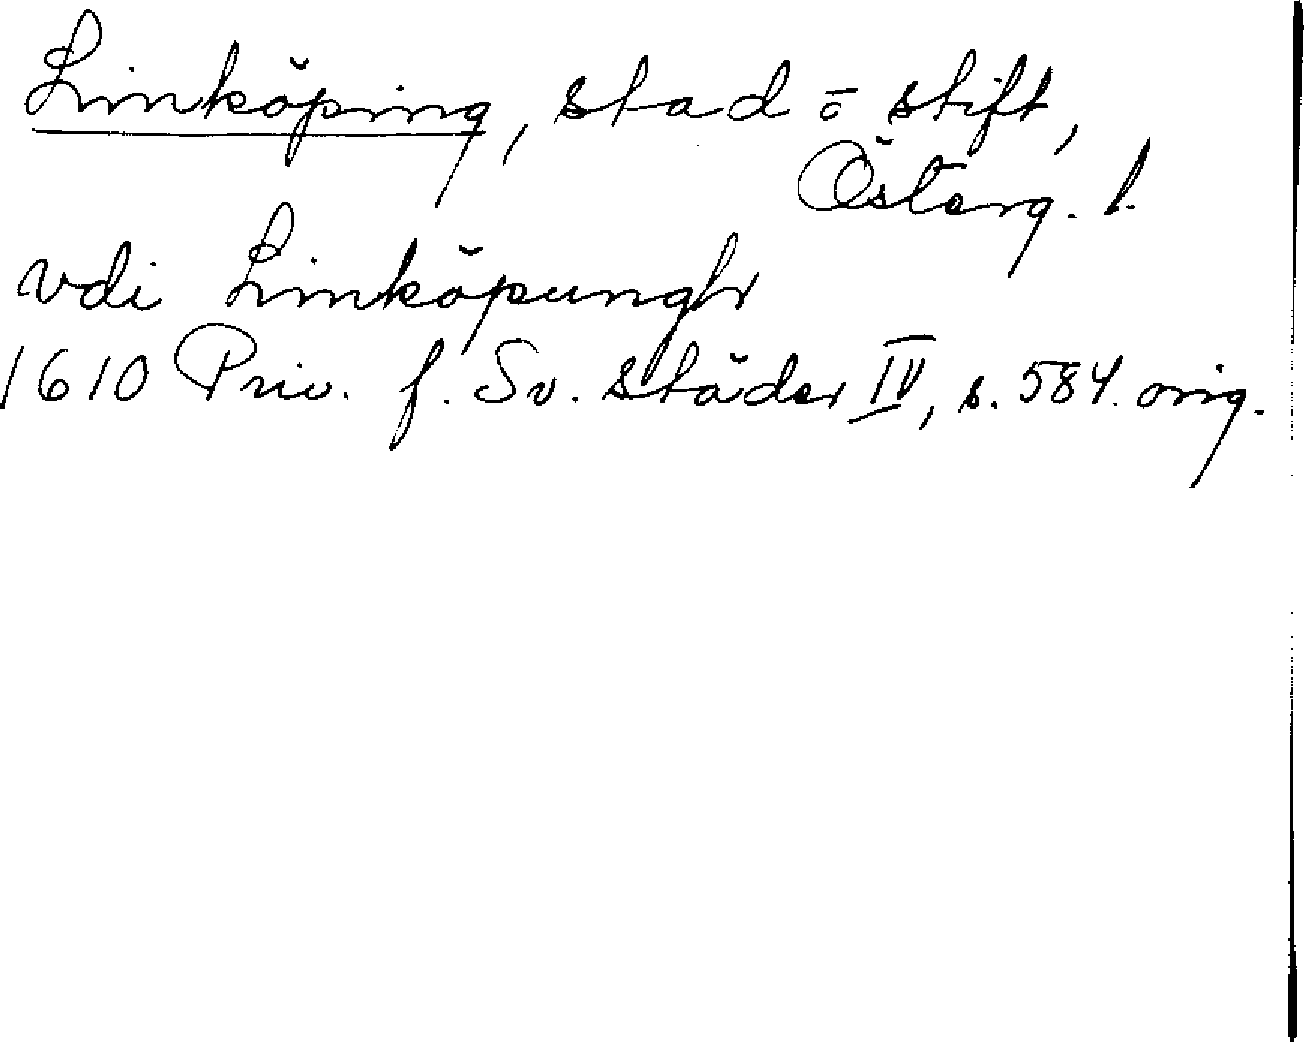 Linköping, stad o stift,
Österg. l.
vdi Linköpungh
1610 Priv. f. Sv. städer IV, s. 584. orig.